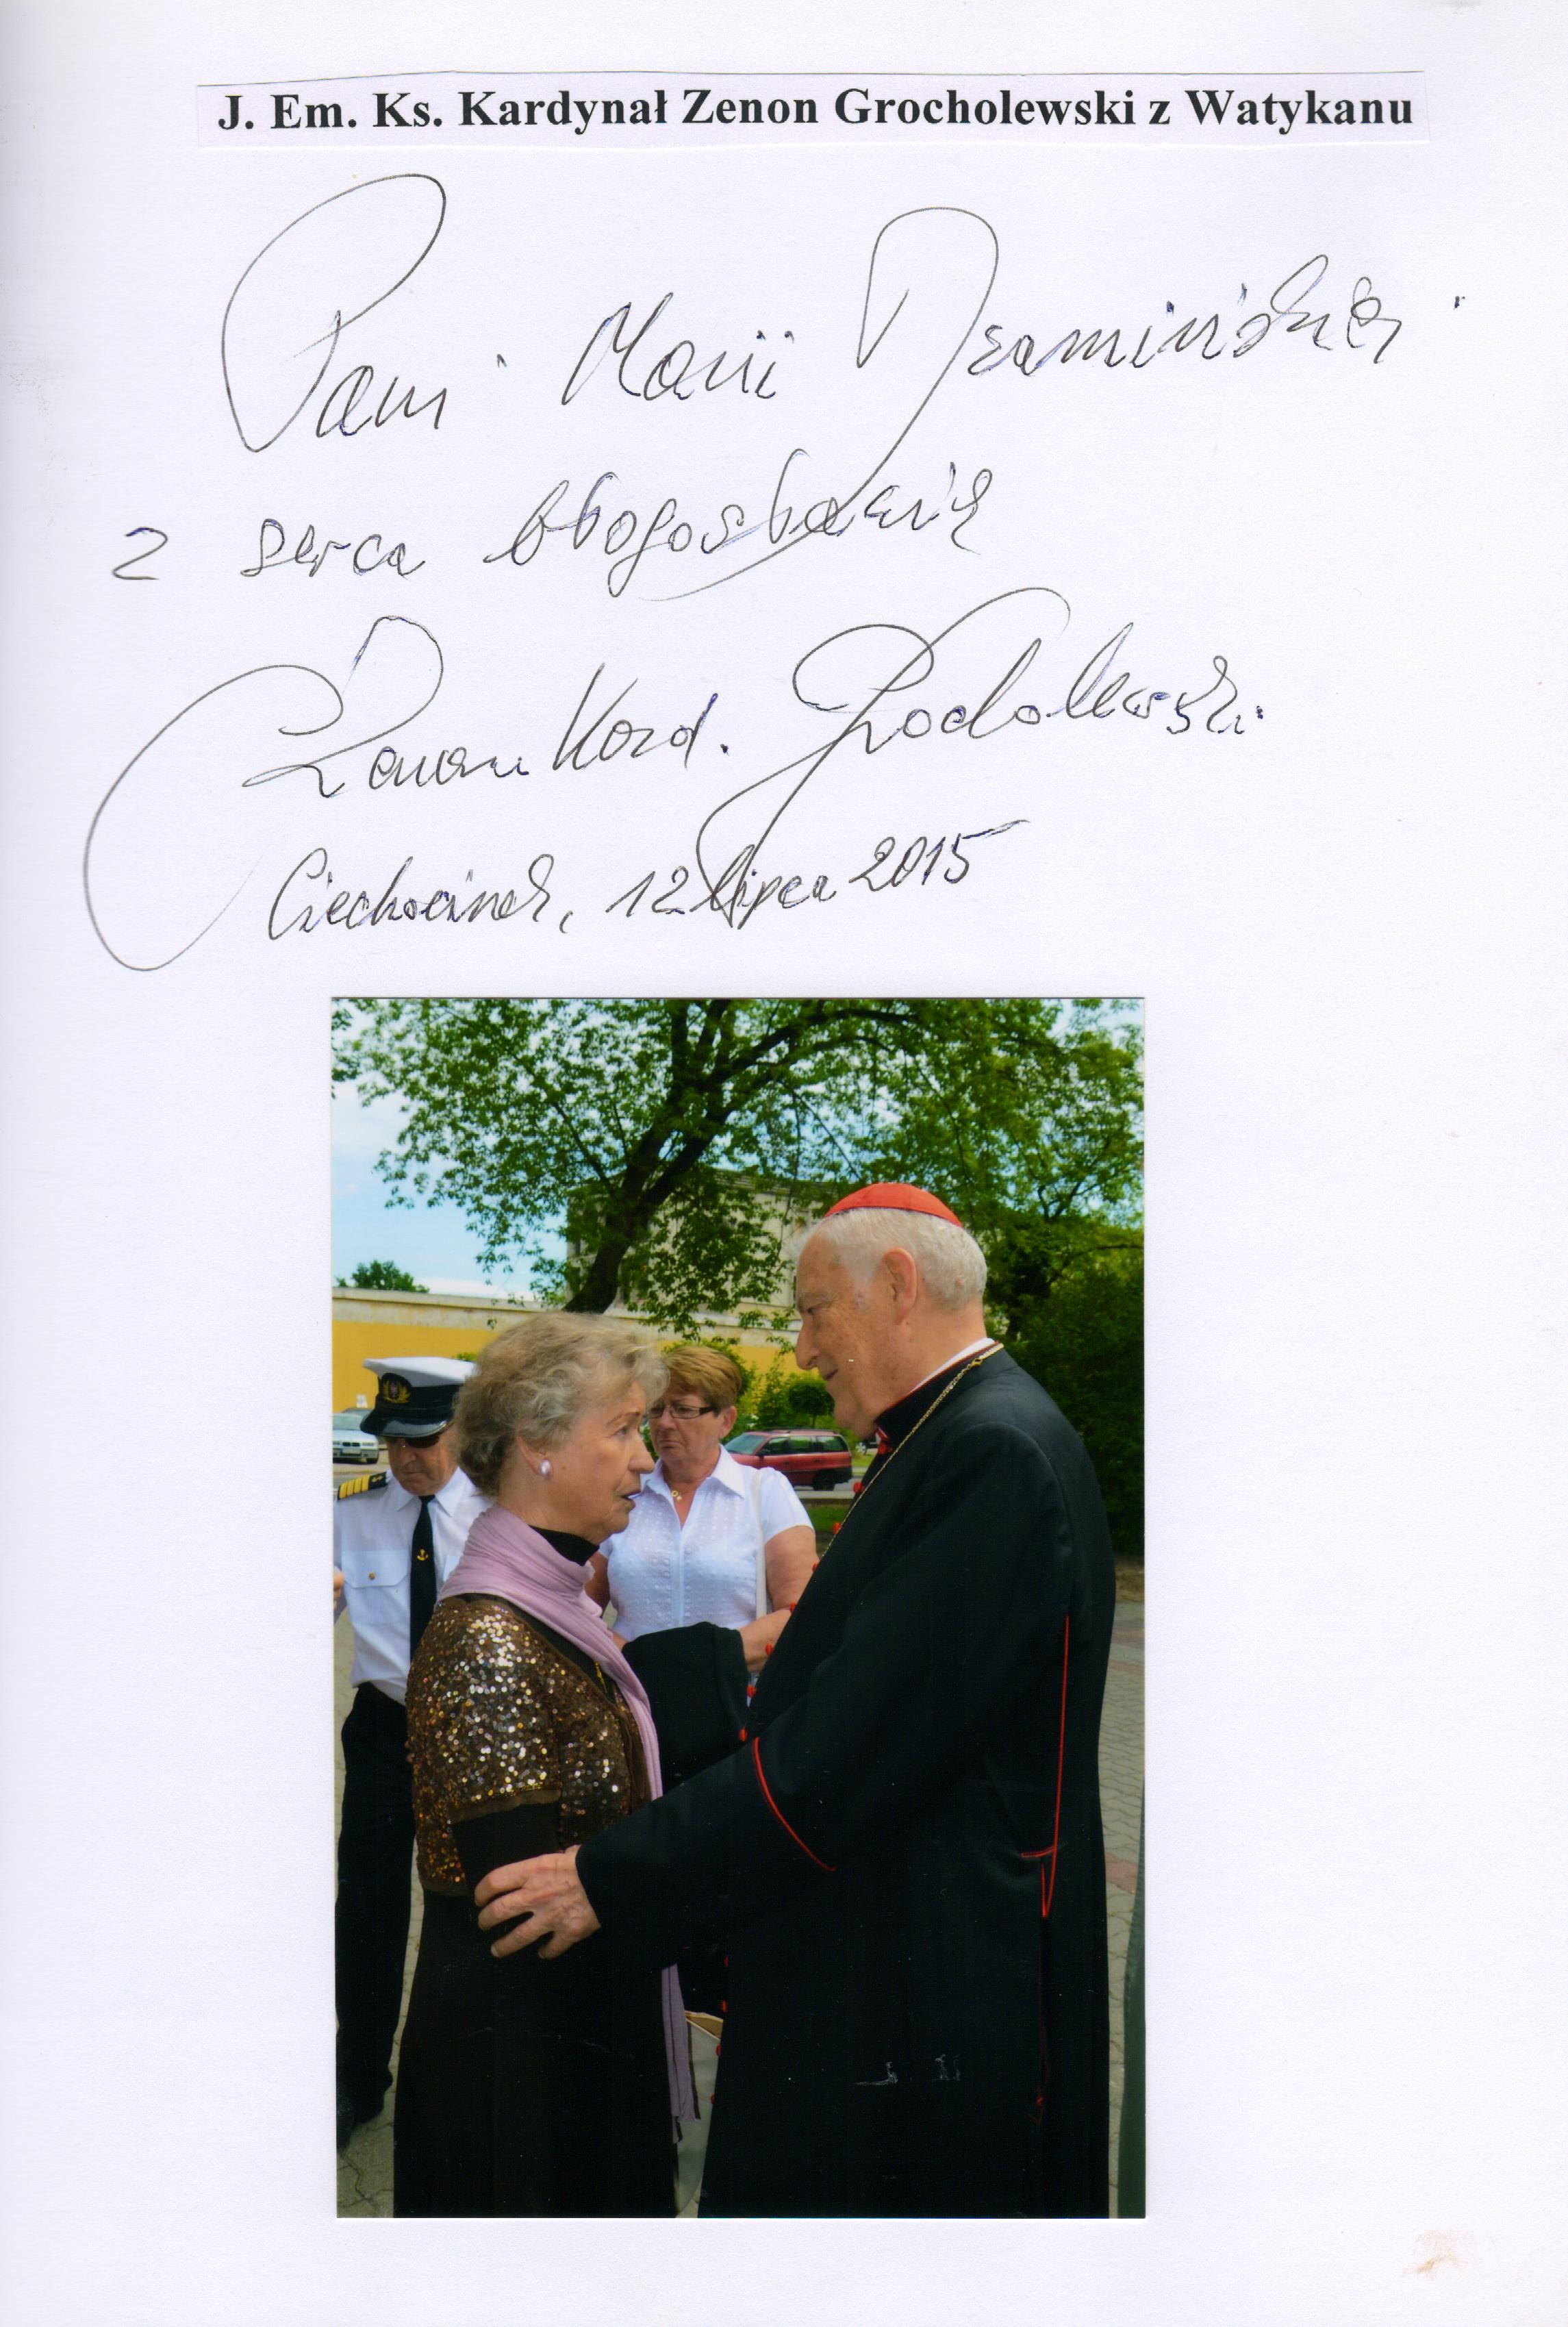 J. Em. Ks. Kardynał Zenon Grocholewski z Watykanu
Pani Marii
z serca błogosławię
Zenon Kard. Grocholewski
Ciechocinek, 12 lipca 2015